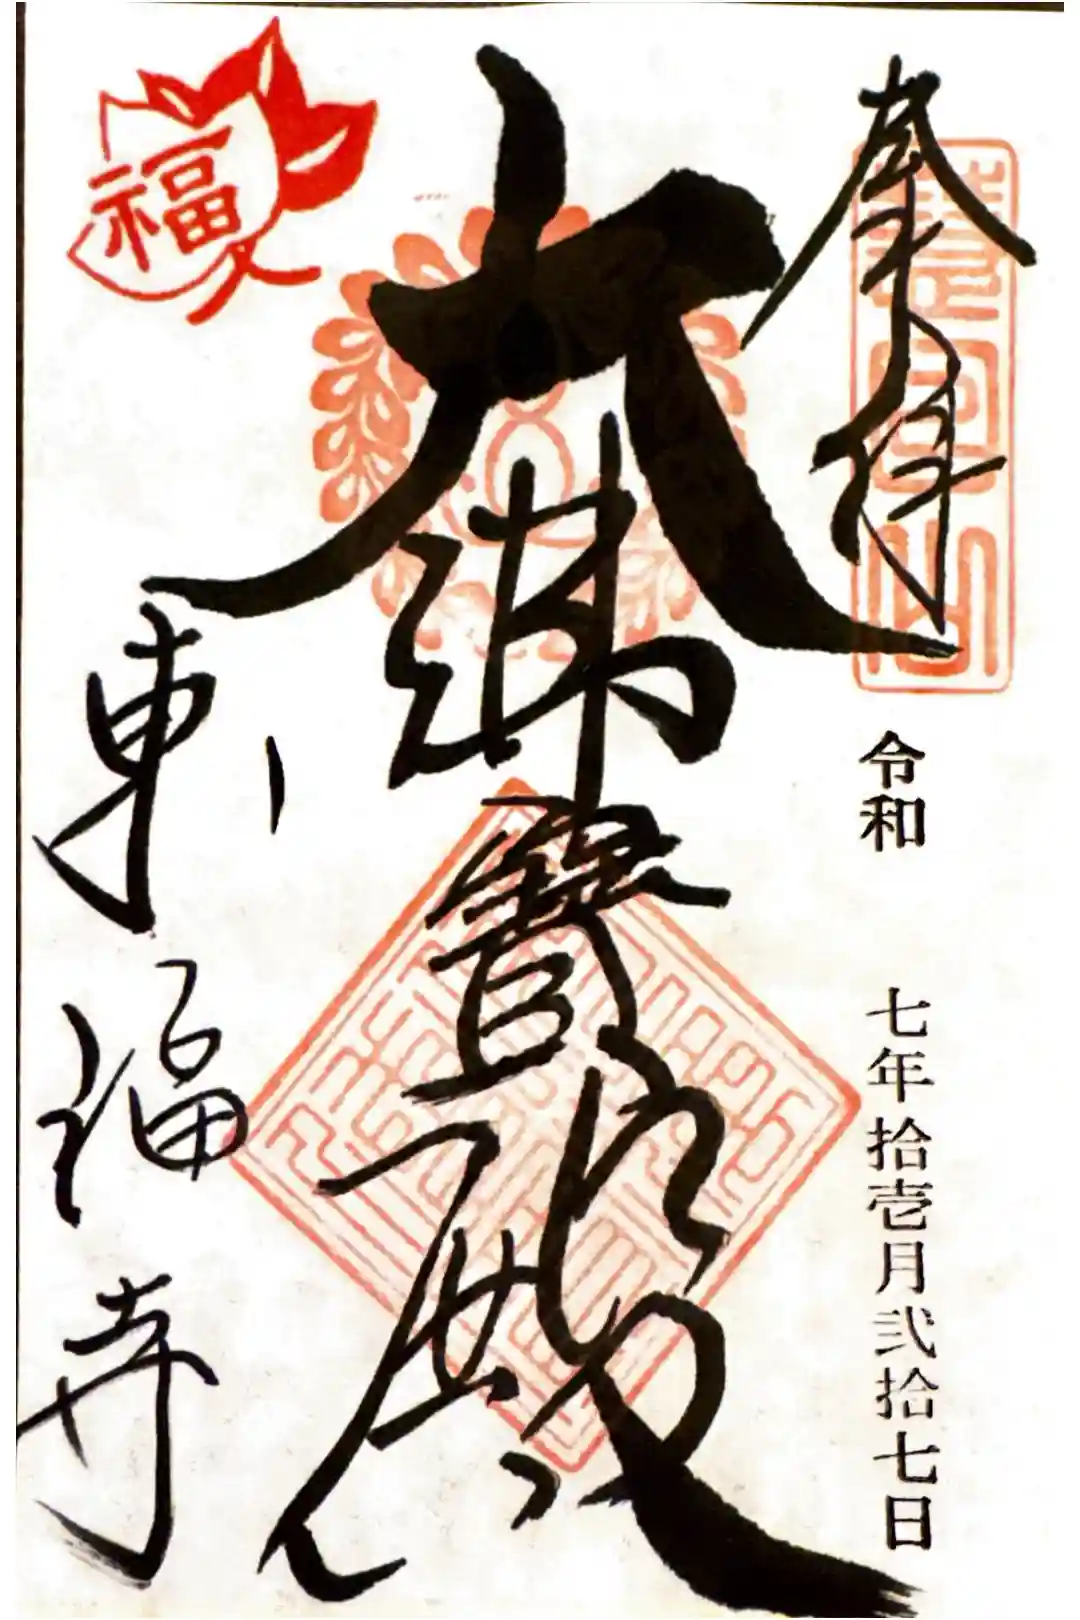 奉拝
慧日山
令和 七年拾壱月弐拾七日
大佛寶殿
福
東福寺